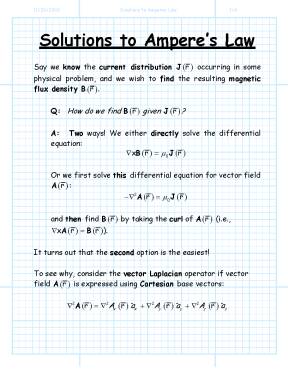 11/8/2005 Solutions to Amperes Law 1/4
Solutions to Ampere's Law
Say we know the current distribution J(r̄) occurring in some
physical problem, and we wish to find the resulting magnetic
flux density B(r̄).
Q: How do we find B(r̄) given J(r̄)?
A: Two ways! We either directly solve the differential
equation:
∇xB(r̄) = μ₀J(r̄)
Or we first solve this differential equation for vector field
A(r̄):
−∇²A(r̄) = μ₀J(r̄)
and then find B(r̄) by taking the curl of A(r̄) (i.e.,
∇xA(r̄) = B(r̄)).
It turns out that the second option is the easiest!
To see why, consider the vector Laplacian operator if vector
field A(r̄) is expressed using Cartesian base vectors:
∇²A(r̄) = ∇²Aₓ(r̄) âₓ + ∇²A_y(r̄) â_y + ∇²A_z(r̄) â_z